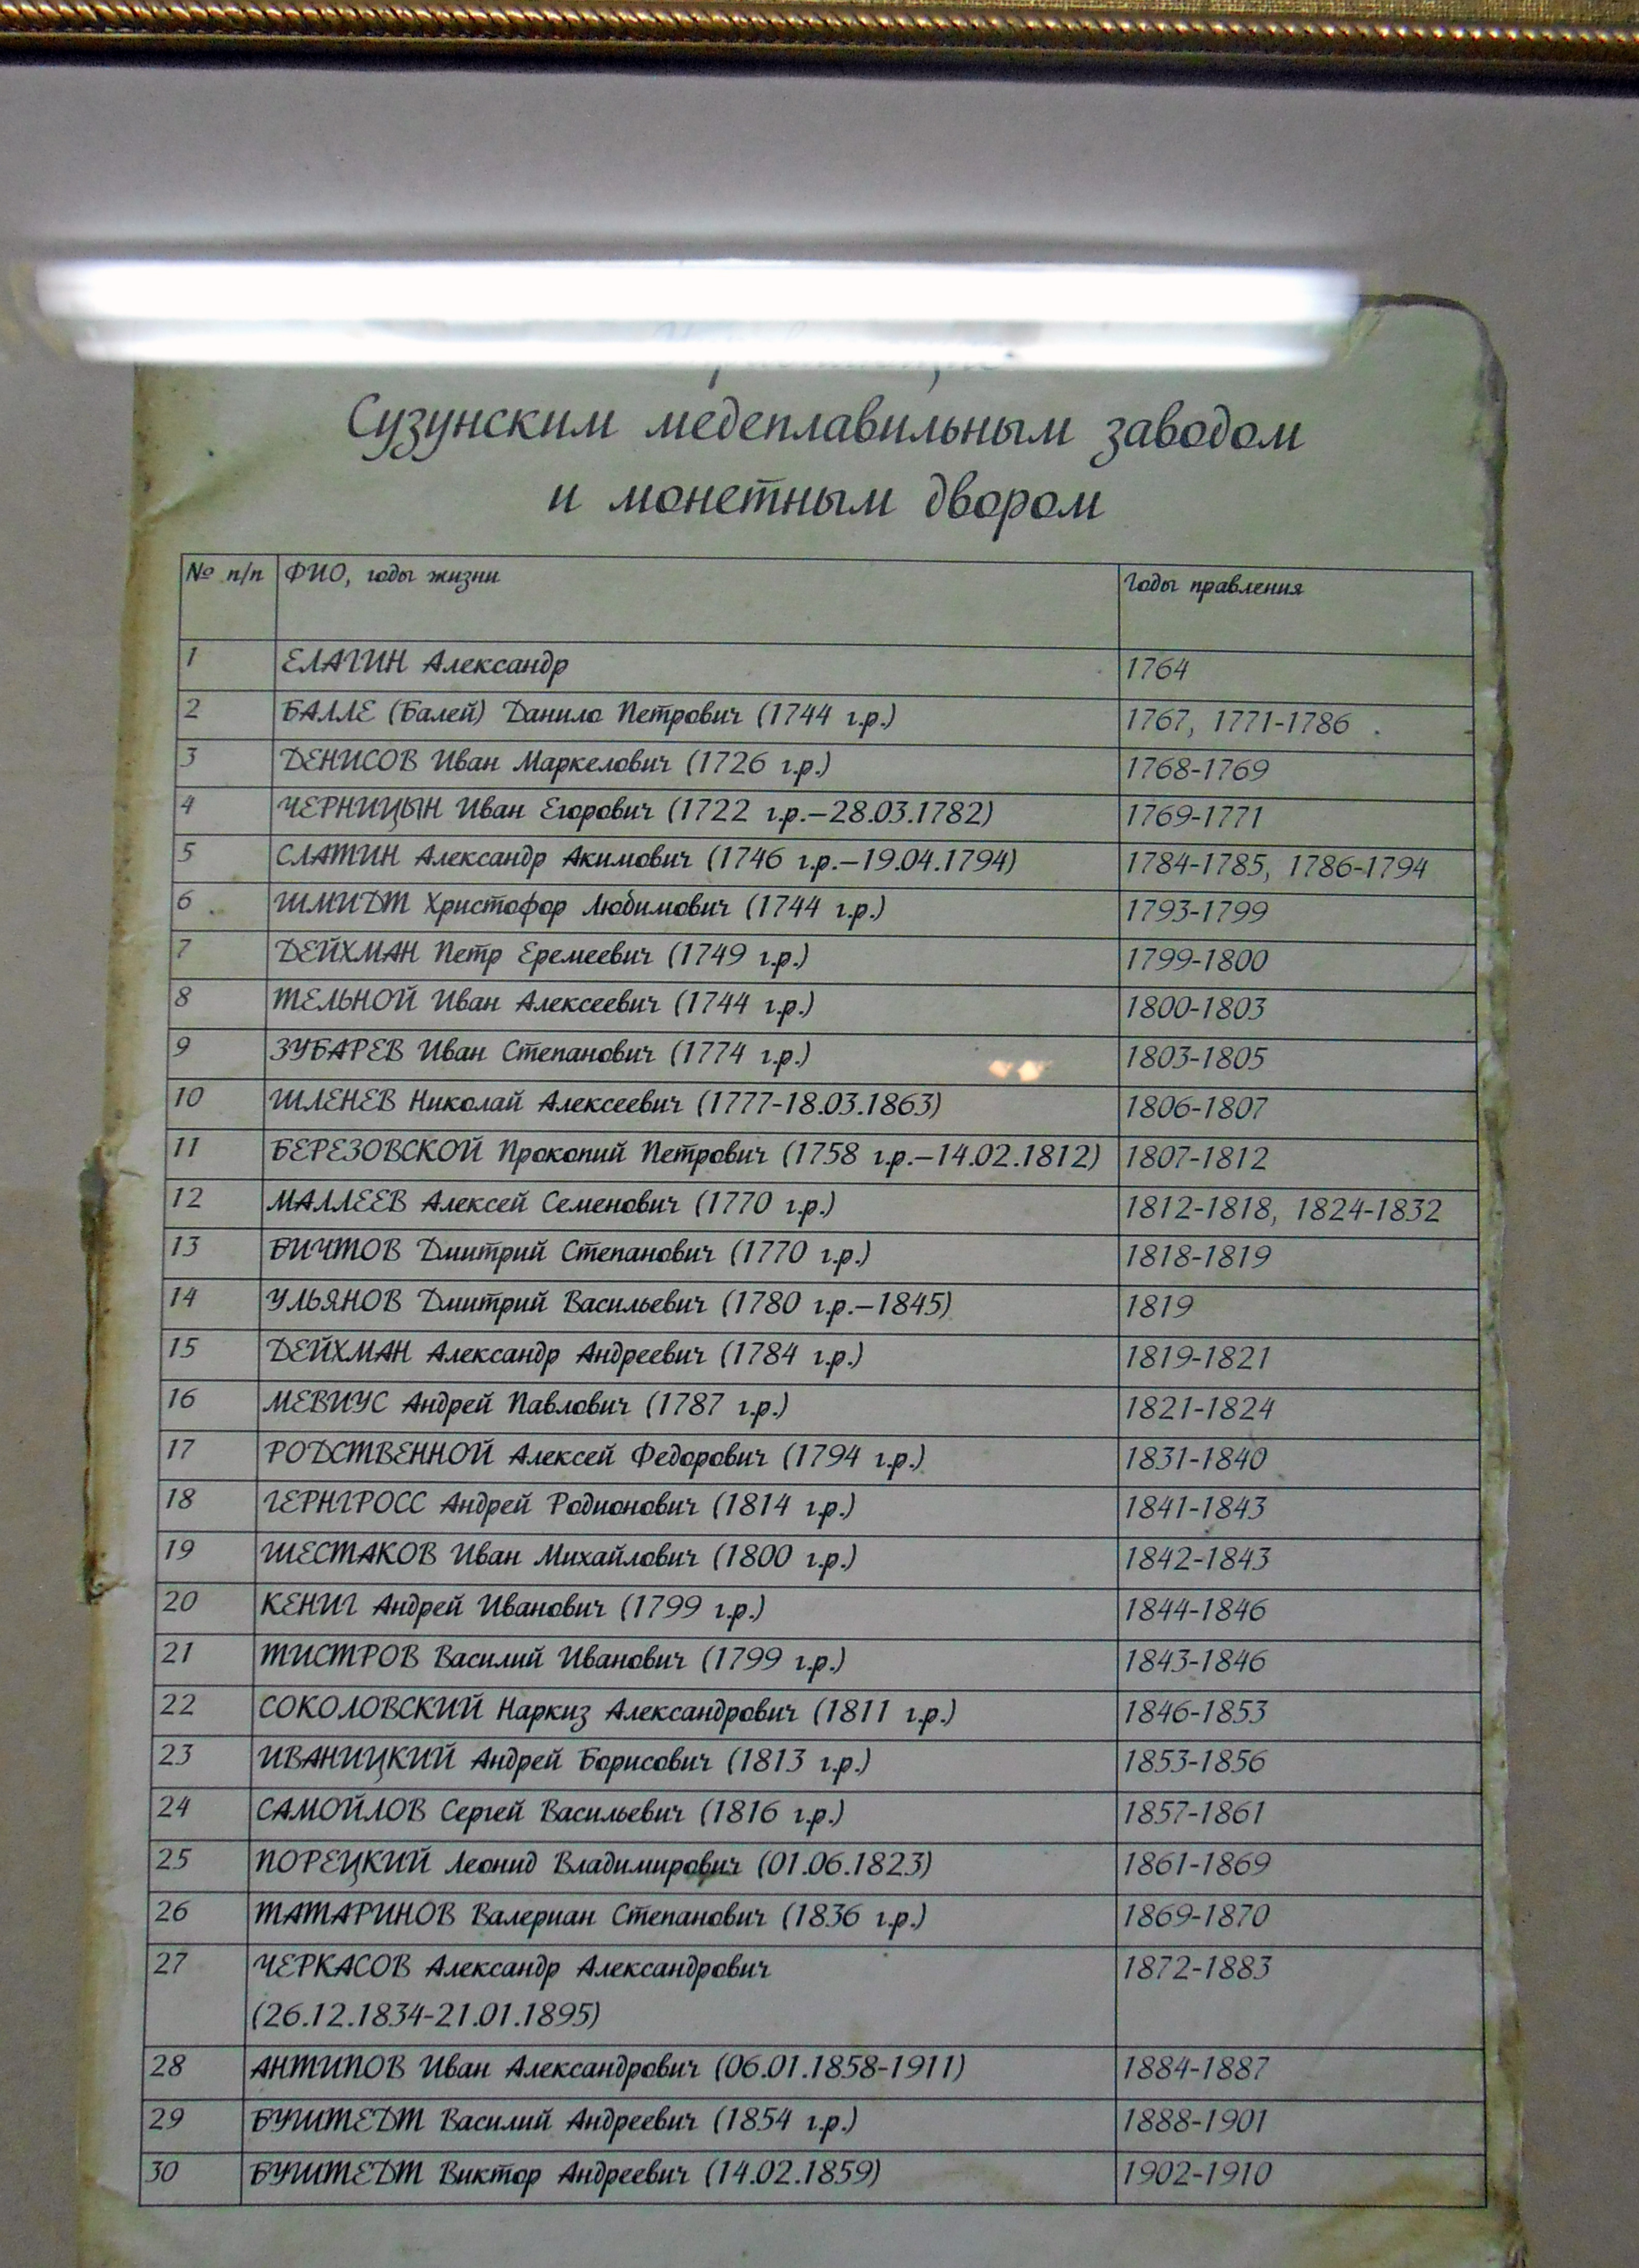 Сузунским медеплавильным заводом
и монетным двором
№ п/п ФИО, годы жизни Годы правления
1 ЕЛАГИН Александр 1764
2 БАЛЛЕ (Балей) Данило Петрович (1744 г.р.) 1767, 1771-1786
3 ДЕНИСОВ Иван Маркелович (1726 г.р.) 1768-1769
4 ЧЕРНИЦЫН Иван Егорович (1722 г.р.–28.03.1782) 1769-1771
5 СЛАТИН Александр Акимович (1746 г.р.–19.04.1794) 1784-1785, 1786-1794
6 ШМИДТ Христофор Любимович (1744 г.р.) 1793-1799
7 ДЕЙХМАН Петр Еремеевич (1749 г.р.) 1799-1800
8 ТЕЛЬНОЙ Иван Алексеевич (1744 г.р.) 1800-1803
9 ЗУБАРЕВ Иван Степанович (1774 г.р.) 1803-1805
10 ШЛЕНЕВ Николай Алексеевич (1777-18.03.1863) 1806-1807
11 БЕРЕЗОВСКОЙ Прокопий Петрович (1758 г.р.–14.02.1812) 1807-1812
12 МАЛЛЕЕВ Алексей Семенович (1770 г.р.) 1812-1818, 1824-1832
13 БИЧТОВ Дмитрий Степанович (1770 г.р.) 1818-1819
14 УЛЬЯНОВ Дмитрий Васильевич (1780 г.р.–1845) 1819
15 ДЕЙХМАН Александр Андреевич (1784 г.р.) 1819-1821
16 МЕВИУС Андрей Павлович (1787 г.р.) 1821-1824
17 РОДСТВЕННОЙ Алексей Федорович (1794 г.р.) 1831-1840
18 ГЕРНГРОСС Андрей Родионович (1814 г.р.) 1841-1843
19 ШЕСТАКОВ Иван Михайлович (1800 г.р.) 1842-1843
20 КЕНИГ Андрей Иванович (1799 г.р.) 1844-1846
21 ТИСТРОВ Василий Иванович (1799 г.р.) 1843-1846
22 СОКОЛОВСКИЙ Наркиз Александрович (1811 г.р.) 1846-1853
23 ИВАНИЦКИЙ Андрей Борисович (1813 г.р.) 1853-1856
24 САМОЙЛОВ Сергей Васильевич (1816 г.р.) 1857-1861
25 ПОРЕЦКИЙ Леонид Владимирович (01.06.1823) 1861-1869
26 ТАТАРИНОВ Валериан Степанович (1836 г.р.) 1869-1870
27 ЧЕРКАСОВ Александр Александрович 1872-1883
(26.12.1834-21.01.1895)
28 АНТИПОВ Иван Александрович (06.01.1858-1911) 1884-1887
29 БУШТЕДТ Василий Андреевич (1854 г.р.) 1888-1901
30 БУШТЕДТ Виктор Андреевич (14.02.1859) 1902-1910